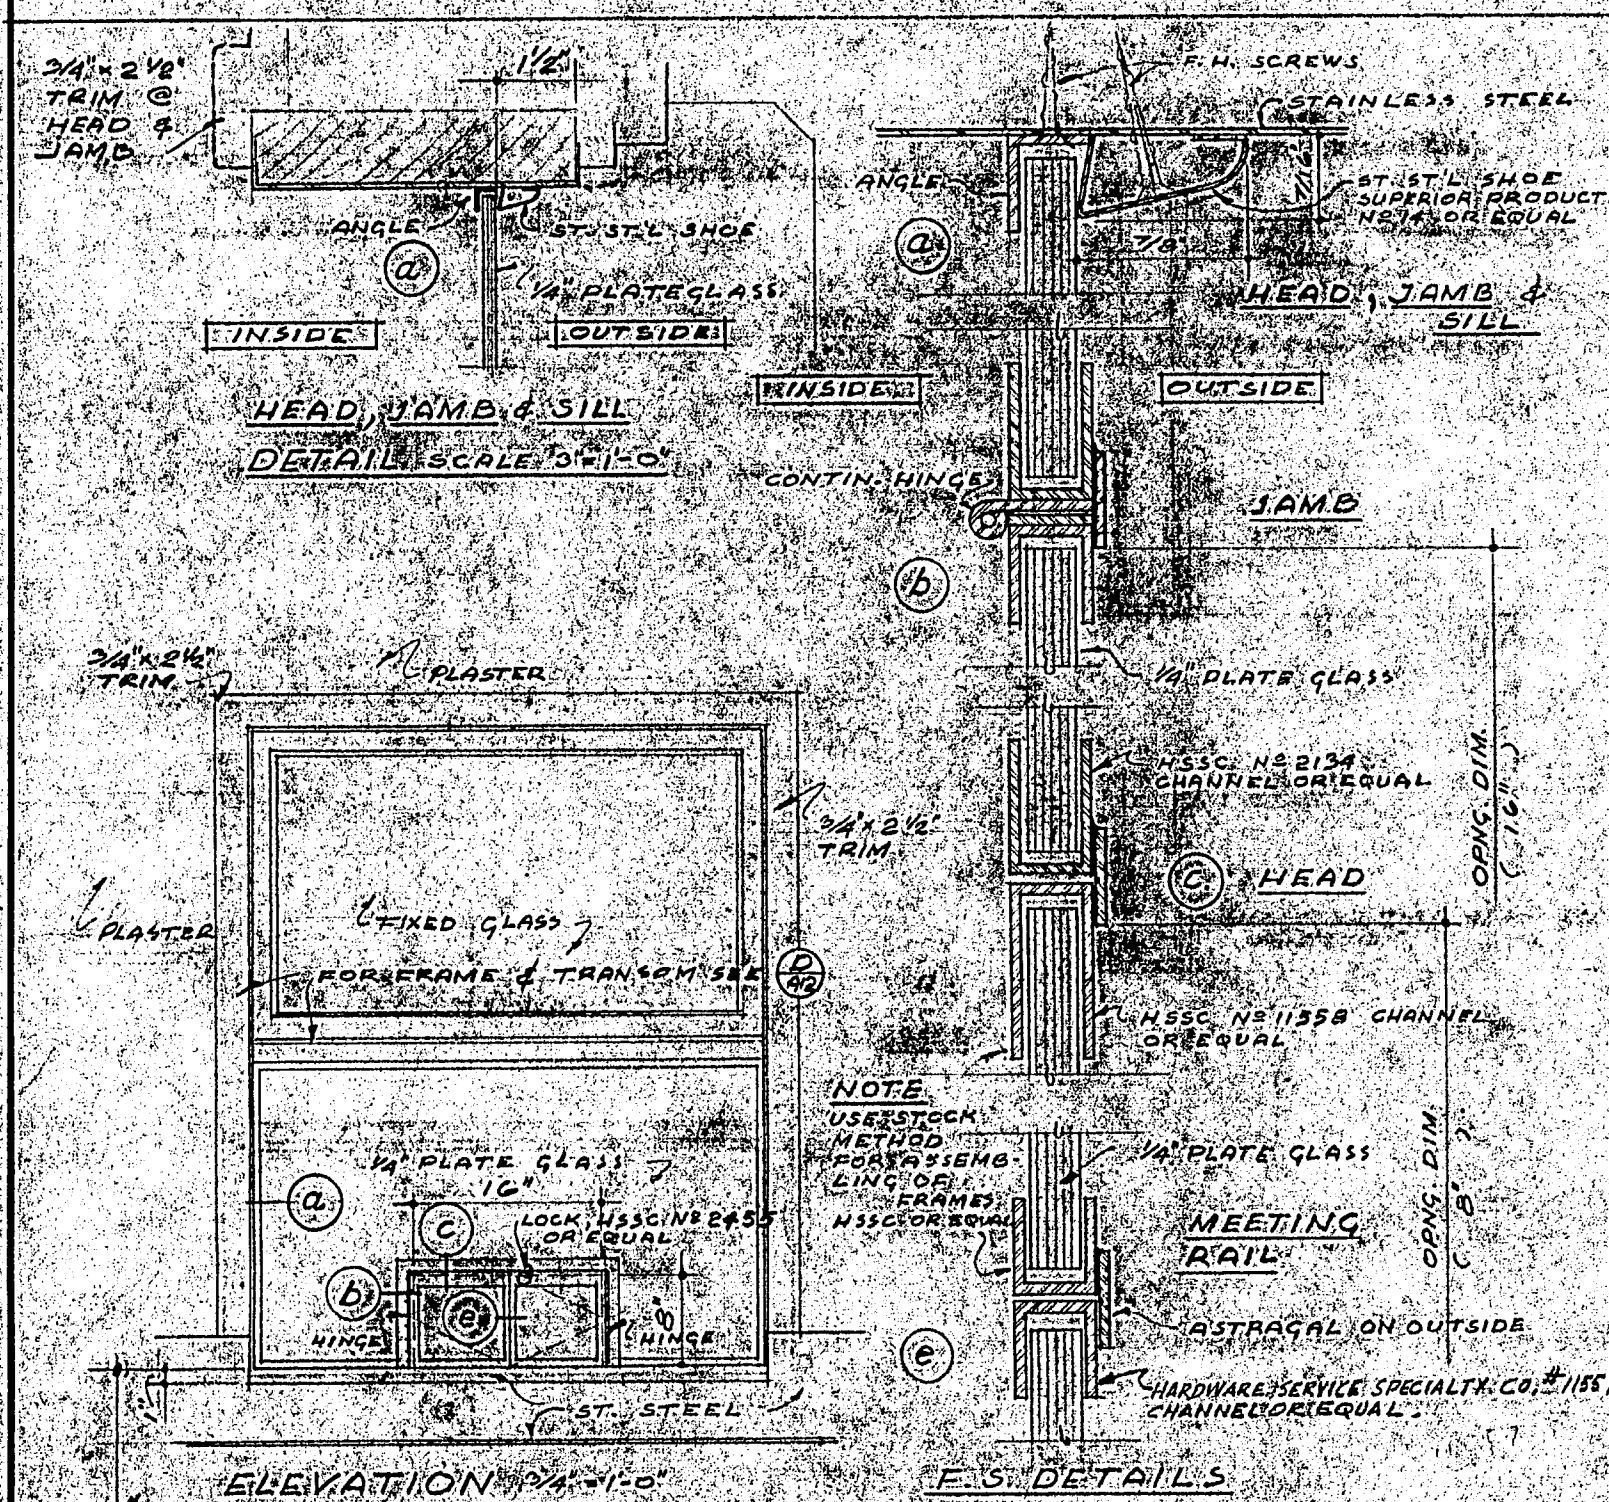 3/4" x 2 1/2"
TRIM @
HEAD &
JAMB
1 1/2"
ANGLE
ST. ST'L SHOE
a
1/4" PLATE GLASS
INSIDE
OUTSIDE
HEAD, JAMB & SILL
DETAIL SCALE 3"=1'-0"
F. H. SCREWS
STAINLESS STEEL
ANGLE
7/16"
ST. ST'L SHOE
SUPERIOR PRODUCT
Nº 74 OR EQUAL
a
7/8"
HEAD, JAMB &
SILL
INSIDE
OUTSIDE
CONTIN. HINGE
JAMB
b
1/4" PLATE GLASS
HSSC Nº 2134
CHANNEL OR EQUAL
OPNG. DIM.
(16")
C
HEAD
HSSC Nº 11558 CHANNEL
OR EQUAL
NOTE
USE STOCK
METHOD
FOR ASSEMB-
LING OF
FRAMES
HSSC OR EQUAL
1/4" PLATE GLASS
OPNG. DIM.
(8")
MEETING
RAIL
ASTRAGAL ON OUTSIDE
e
HARDWARE SERVICE SPECIALTY CO, #1155
CHANNEL OR EQUAL.
F. S. DETAILS
3/4" x 2 1/2"
TRIM
PLASTER
3/4" x 2 1/2"
TRIM
PLASTER
FIXED GLASS
FOR FRAME & TRANSOM SEE
D
A12
1/4" PLATE GLASS
16"
a
C
LOCK, HSSC Nº 2455
OR EQUAL
b
e
HINGE
HINGE
8"
1"
ST. STEEL
ELEVATION 3/4"=1'-0"